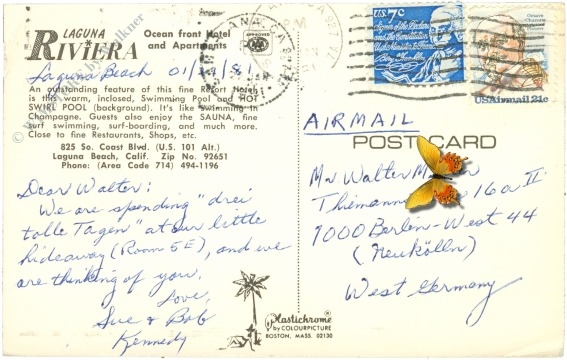 LAGUNA
RIVIERA
Ocean front Hotel
and Apartments
APPROVED
AAA
Laguna Beach 01/19/81
An outstanding feature of this fine Resort Hotel
is this warm, inclosed, Swimming Pool and HOT
SWIRL POOL (background). It's like Swimming in
Champagne. Guests also enjoy the SAUNA, fine
surf swimming, surf-boarding, and much more.
Close to fine Restaurants, Shops, etc.
825 So. Coast Blvd. (U.S. 101 Alt.)
Laguna Beach, Calif. Zip No. 92651
Phone: (Area Code 714) 494-1196
Dear Walter:
We are spending "drei
tolle Tagen" at our little
hideaway (Room 5E), and we
are thinking of you.
Love,
Sue & Bob
Kennedy
Plastichrome®
by COLOURPICTURE
BOSTON, MASS. 02130
U.S. 7c
USAirmail 21c
AIRMAIL
POST CARD
Mr Walter
16a II
1000 Berlin-West 44
(Neukölln)
West Germany